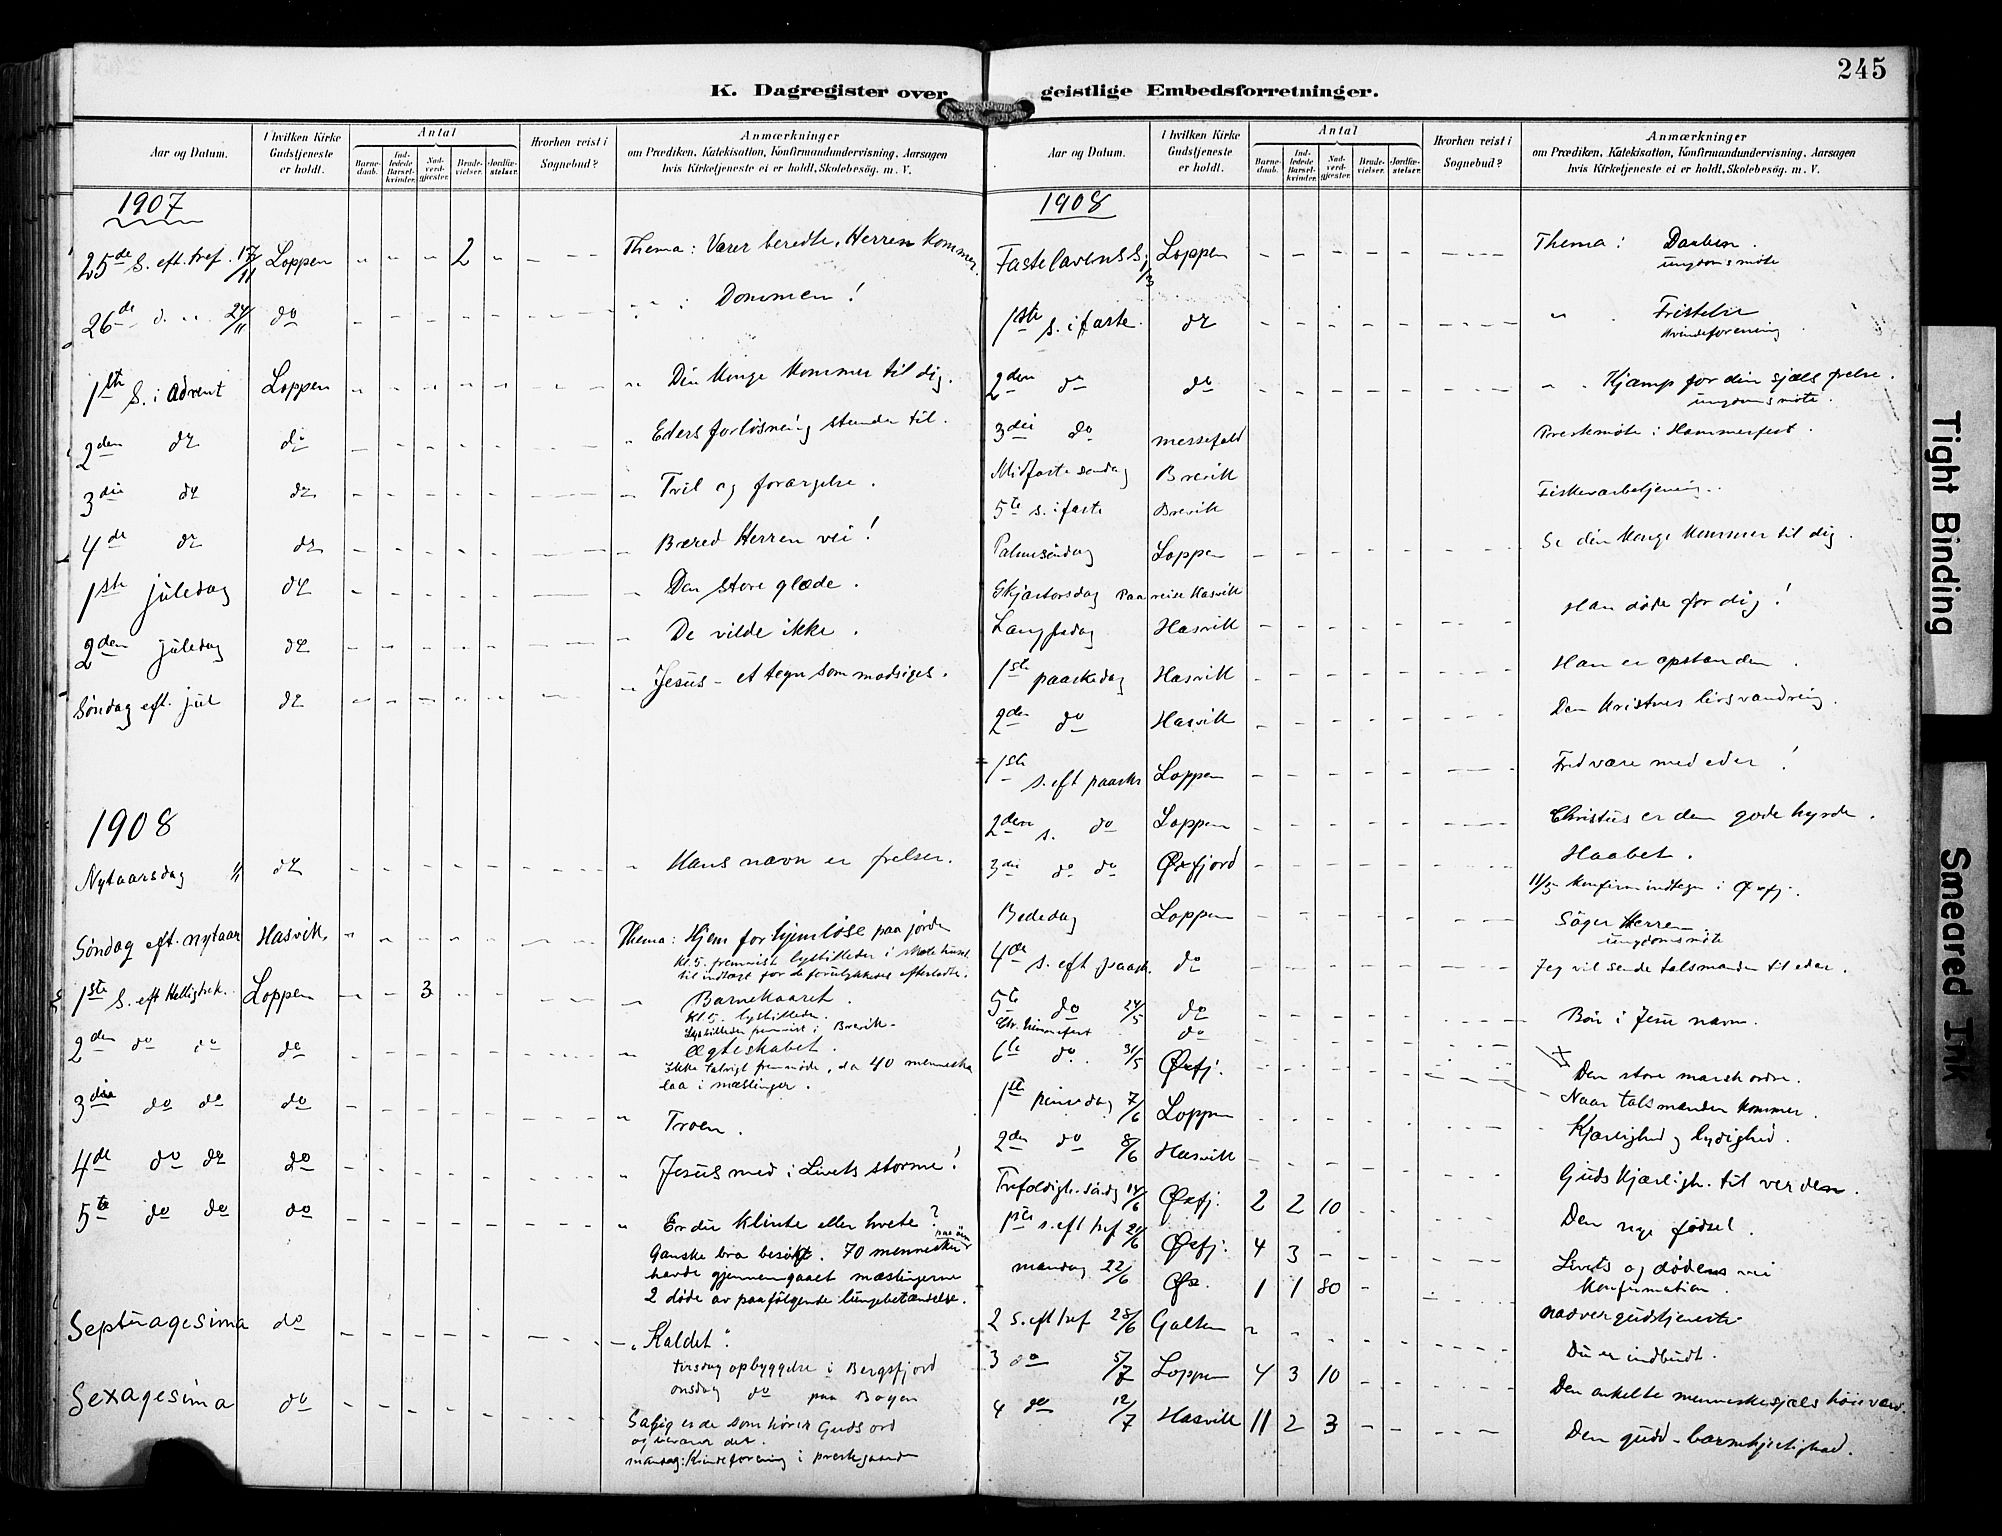 245
K. Dagregister over geistlige Embedsforretninger.
Aar og Datum.
I hvilken Kirke Gudstjeneste er holdt.
Antal
Barne-daab.
Ind-ledede Barsel-kvinder.
Nad-verd-gjester.
Brude-vielser.
Jordfæ-stelser.
Hvorhen reist i Sognebud?
Anmærkninger
om Prædiken, Katekisation, Konfirmandundervisning, Aarsagen
hvis Kirketjeneste ei er holdt, Skolebesøg. m. V.
1907
25de S. eft. tref. 17/11 Loppen 2 Thema: Værer beredte, Herren kommer
26de 24/11 do Dommen!
1ste S. i Advent Loppen Din Konge kommer til dig.
2den do do Eders forløsning stunder til.
3die do do Tvil og forargelse.
4de do do Bered Herren vei!
1ste juledag do Den store glæde.
2den juledag do De vilde ikke.
Søndag eft. jul do Jesus - et tegn som modsiges.
1908
Nytaarsdag 1/1 do Hans navn er frelser.
Søndag eft. nytaar Hasvik. Thema: Hjem for hjemløse paa jorden
kl. 5. fremvist lysbilleder i skolehuset
til indtægt for de forulykkedes efterladte.
1ste S. eft Helligtrek. Loppen 3 Barnekaaret.
kl. 5. lysbilleder.
Lysbilleder fremvist i Brevik.
2den do do do Ægteskabet.
Ikke talrigt fremmøde, da 40 menneske
laa i mæslinger.
3die do do do Troen.
4de do do do Jesus med i Livets storme!
5te do do do Er du klinte eller hvete?
Ganske bra besøkt. 70 mennesker paa øen
havde gjennemgaaet mæslingerne
2 døde av paafølgende lungebetændelse.
Septuagesima do "Kaldet"
tirsdag opbyggelse i Bergsfjord
onsdag do paa Bogen
Sexagesima do Salig er de som hører Guds ord
og bevarer det.
mandag: Kvindeforening i prestegaarden
Aar og Datum.
I hvilken Kirke Gudstjeneste er holdt.
Antal
Barne-daab.
Ind-ledede Barsel-kvinder.
Nad-verd-gjester.
Brude-vielser.
Jordfæ-stelser.
Hvorhen reist i Sognebud?
Anmærkninger
om Prædiken, Katekisation, Konfirmandundervisning, Aarsagen
hvis Kirketjeneste ei er holdt, Skolebesøg. m. V.
1908
Fastelavens S. 1/3 Loppen Thema: Daaben.
ungdomsmøte
1ste S. i faste. do Fristelse
Kvindeforening
2den do do Kjæmp for din sjæls frelse.
ungdomsmøte.
3die do messefald Prestemøte i Hammerfest.
Midfaste søndag Brevik
5te s. i faste Brevik Fiskeværbetjening.
Palmesøndag Loppen Se din Konge kommer til dig.
Skjærtorsdag paa reise Hasvik
Langfredag Hasvik Han døde for dig!
1ste paaskedag Hasvik Han er opstanden.
2den do Hasvik Den kristnes livsvandring.
1ste s. eft paaske Loppen Fred være med eder!
2den s. do Loppen Christus er den gode hyrde.
3die do do Øxfjord Haabet.
11/5 konfirmindtegn i Øxfj.
Bededag Loppen Søger Herren
ungdomsmøte
4de s. eft paask. do Jeg vil sende talsmanden til eder.
5te do 24/5 do Bøn i Jesu navn.
Chr. himmelfart do
6te do. 31/5 Øxfj. Den store marsch ordre.
1ste pinsedag 7/6 Loppen Naar talsmanden kommer.
2den do 8/6 Hasvik Kjærlighed og lydighed.
Trefoldigh. søndag 14/6 Øxfj. 2 2 10 Guds Kjærligh. til verden.
1ste s. eft tref 21/6 Øxfj. 4 3 Den nye fødsel.
mandag 22/6 Øx. 1 1 80 Livets og dødens vei
Konfirmation.
2 S. eft tref 28/6 Galten nadvergudstjeneste
3 do 5/7 Loppen 4 3 10 Du er indbudt.
4 do 12/7 Hasvik 11 2 3 Den enkelte menneskesjæls høie værd.
Den gudd. barmhjertighed.
Tight Binding
Smeared Ink